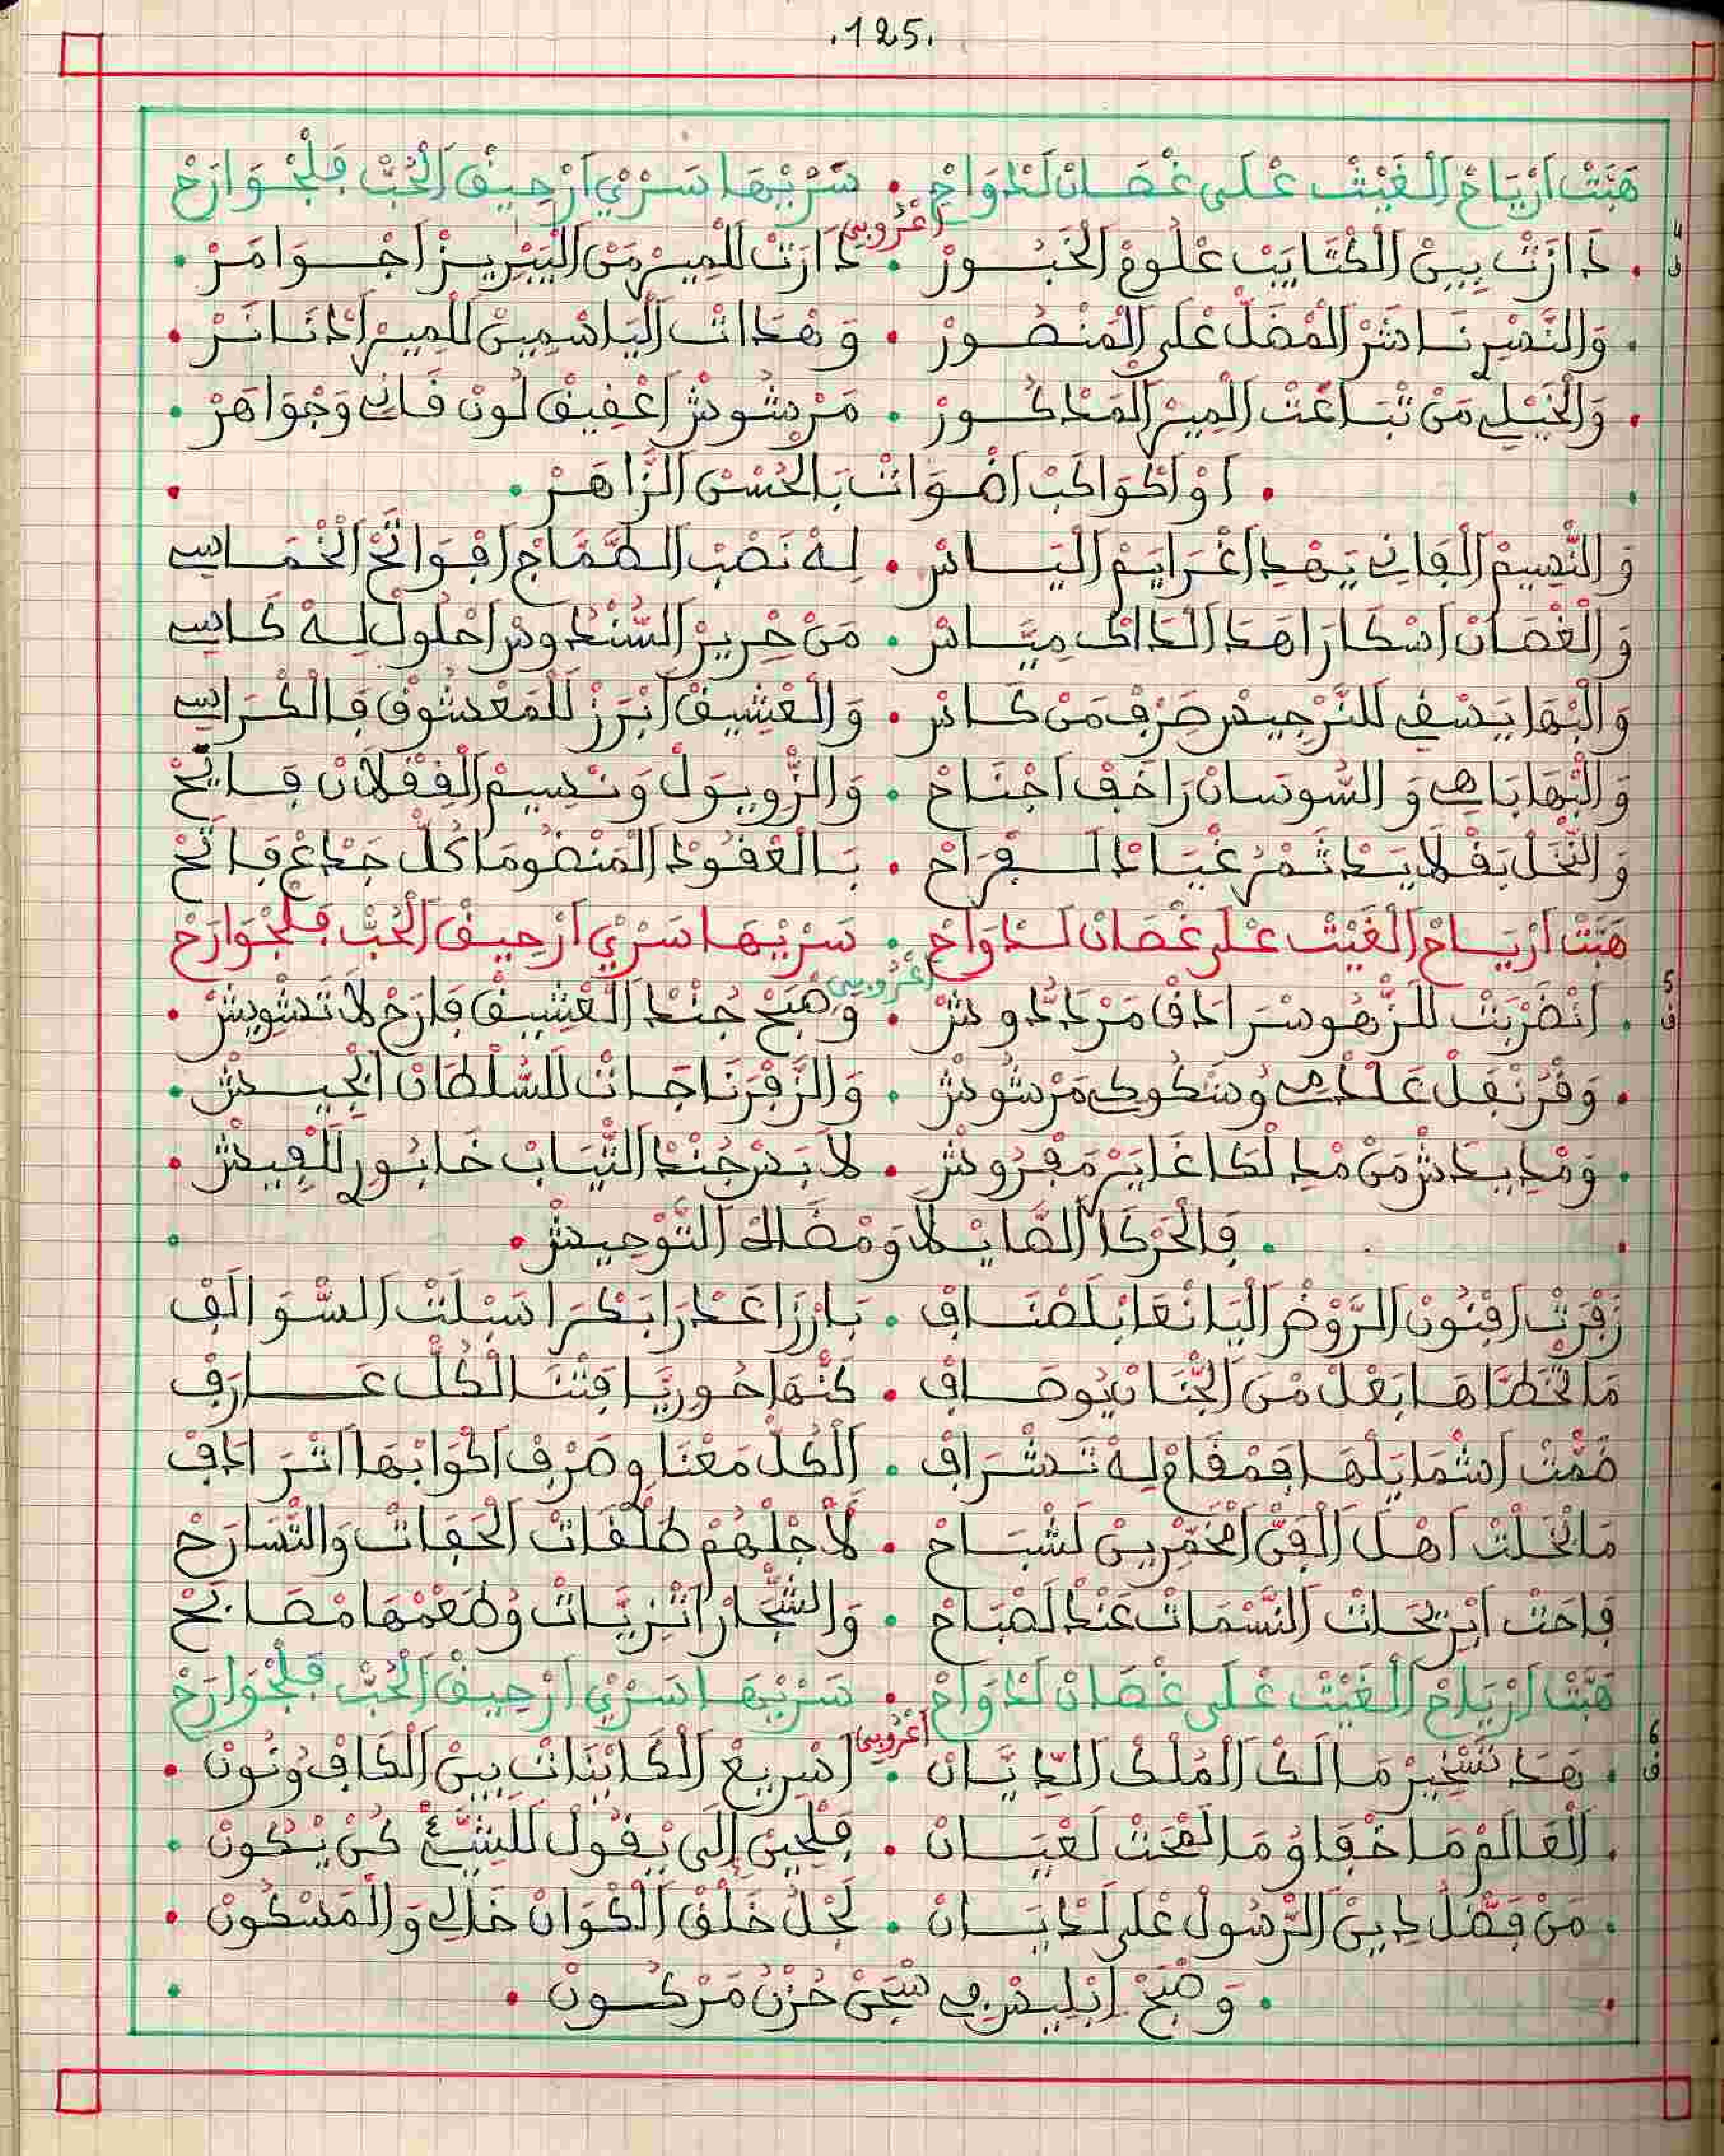 .125.
هَبَّتْ اَرْيَاحْ اَلْغَيْثْ عْلَى غْصَانْ لَدْوَاحْ • سَرْبْهَا سَرْيْ اَرْحِيقْ اَلْحُبّْ فَلْجْوَارَحْ
اعْرُوبي
4 ف
• دَارَتْ بِينْ اَلْكْتَايَبْ عْلُومْ اَلْخَبُورْ • دَارَتْ لَلْمِيرْ مَنْ اَلتَّبْرِيزْ اَجْوَامَرْ •
• وَالنَّصْرْ نَاشَرْ اَلْمْضَلّْ عْلَى اَلْمَنْصُورْ • وَهْدَاتْ اَلْيَاسْمِينْ لَلْمِيرْ اَدْنَانَرْ •
• وَالْخَيْلِي مَنْ تْبَاعْتْ اَلْمِيرْ اَلْمَدْكُورْ • مَرْشُوشْ اَعْقِيقْ لُونْ قَانِي وَجْوَاهَرْ •
• اَوْ اَكْوَاكَبْ اَضْوَاتْ بَالْحُسْنْ اَلزَّاهَرْ •
وَالنّْسِيمْ اَلْفَانِي يَهْدِ اَغْرَايَمْ اَلْيَاسْ • لِهْ نَصْبْ اَلطَّمَّاجْ اَفْوَاتَحْ اَلْخْمَاسِي
وَالْغْصَانْ اَسْكَارَا هَدَا اَلدَاكْ مِيَّاسْ • مَنْ حْرِيرْ اَلسُّنْدُوسْ اَحْلُولْ لِهْ كَاسِي
وَالْبْهَا يَسْقِي لَلنَّرْجِيسْ صَرْفْ مَنْ كَاسْ • وَالْعْشِيقْ اَبْرَزْ لَلْمَعْشُوقْ فَالْكْرَاسِي
وَالْبْهَا بَاهِي وَالسُّوسَانْ رَاخَفْ اَجْنَاحْ • وَالزّْوِيوَلْ وَنْسِيمْ اَلْقُقْلَانْ فَايَحْ
وَالنّْخَلْ بَقْلَايَدْ ثَمْرْ غْبَادْ لَفْرَاحْ • بَالْعْقُودْ اَلْمَنْضُومَا كُلّْ جَدْعْ فَاتَحْ
هَبَّتْ اَرْيَاحْ اَلْغَيْثْ عْلَى غْصَانْ لَدْوَاحْ • سَرْبْهَا سَرْيْ اَرْحِيقْ اَلْحُبّْ فَلْجْوَارَحْ
اعْرُوبي
5 ف
• اَنْضَرْبَتْ للزّْهُو سْرَادَقْ مَرْدَدُّوشْ • وَصْبَحْ جُنْدْ اَلْعْشِيقْ فَارَحْ لَا تَشْوِيشْ •
• وَقْرُنْفَلْ عَلْمِي وْسَكُوكِي مَرْشُوشْ • وَالزَّفْرْنَا جَاتْ لَلسُّلْطَانْ اَلْجِيشْ •
• وَمْدِيدَشْ مَنْ مْدِ لْكَاغَايَرْ مَفْرُوشْ • لَابَسْ جُنْدْ اَلثّْيَابْ خَابُورْ لَلْفِيشْ •
• فَالْحَرْكَا اَلصَّايْلَا وَمْضَلْ اَلتَّوْحِيشْ •
زَفْرَتْ اَفْنُونْ اَلرَّوْضْ اَلْيَانْعَا بْلَصْنَافْ • بَارْزَا عَدْرَا بَكْرَا سَبْلَتْ اَلسّْوَالَفْ
مَا تْخَطَّاهَا بَعْلْ مْنْ اَلْجْنَانْ يُوصَافْ • كَنّْهَا حُورِيَّا فِتْنَتْ اَلْكُلّْ عَارَفْ
ضَمَّتْ اَشْمَايَلْهَا فَمْقَامْ لِهْ تَشْرَافْ • اَلْكُلّْ مَعْنَا وصَرْفْ اَكْوَابْهَا اَتْرَادَفْ
مَا نْحَلْتْ اَهْلْ اَلْفَنّْ اَلْخَمْرِيِّينْ لَشْبَاحْ • لَاجْلْهُمْ طَلْقَاتْ اَلْحَقَاتْ وَالتّْسَارَحْ
فَاحَتْ اَبْرِيحَاتْ اَلنَّسْمَاتْ عَنْدْ لَصْبَاحْ • وَالشّْجَارْ اَتْزَيَّاتْ وُطَعْمْهَا مْصَابَحْ
هَبَّتْ اَرْيَاحْ اَلْغَيْثْ عْلَى غْصَانْ لَدْوَاحْ • سَرْبْهَا سَرْيْ اَرْحِيقْ اَلْحُبّْ فَلْجْوَارَحْ
اعْرُوبي
6 ف
• هَدَا تَسْخِيرْ مَالَكْ اَلْمُلْكْ اَلدِّيَّانْ • اَسْرِيعْ اَلْكَايْنَاتْ بِينْ اَلْكَافْ وُنُونْ •
• اَلْعَالَمْ مَا خْفَاوْ مَا لَمْحَتْ لَعْيَانْ • فَلْحِينْ إِلَى يْقُولْ لَلشَّيْءْ كُنْ يْكُونْ •
• مَنْ فَضَّلْ دِينْ اَلرَّسُولْ عْلَى لَدْيَانْ • لَجْلْ خَلْقْ اَلْكْوَانْ خَالِي وَالْمَسْكُونْ •
• وَصْبَحْ إِبْلِيسْ فِي سْجَنْ حُزْنْ مَرْكُونْ •